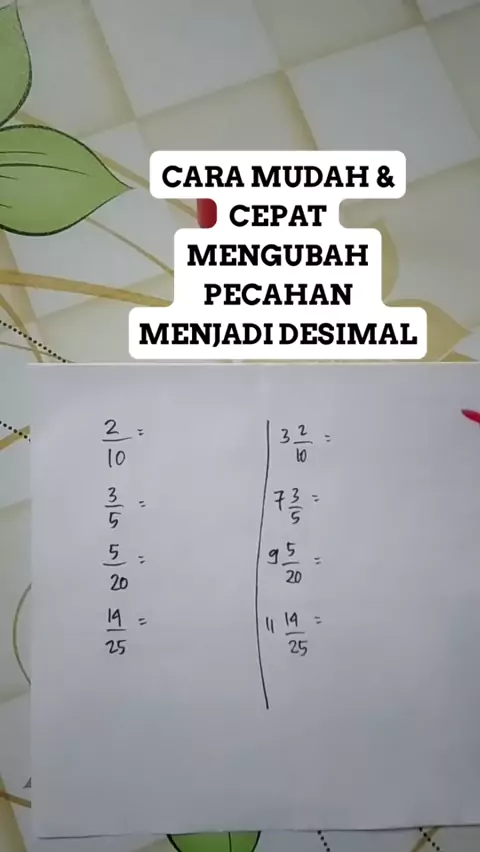 CARA MUDAH &
CEPAT
MENGUBAH
PECAHAN
MENJADI DESIMAL
2/10 =
3/5 =
5/20 =
14/25 =
3 2/10 =
7 3/5 =
9 5/20 =
11 14/25 =